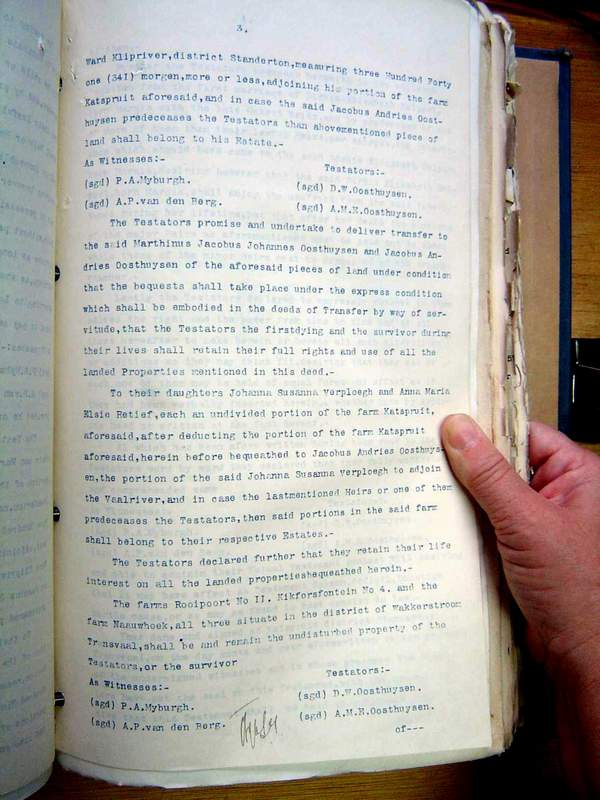 3.
Ward Klipriver,district Standerton,measuring three Hundred Forty
one (341) morgen,more or less,adjoining his portion of the farm
Katspruit aforesaid,and in case the said Jacobus Andries Oost-
huysen predeceases the Testators than abovementioned piece of
land shall belong to his Estate.-
As Witnesses:-
Testators:-
(sgd) P.A.Myburgh.
(sgd) D.W.Oosthuysen.
(sgd) A.P.van den Berg.
(sgd) A.M.E.Oosthuysen.
The Testators promise and undertake to deliver transfer to
the said Marthinus Jacobus Johannes Oosthuysen and Jacobus An-
dries Oosthuysen of the aforesaid pieces of land under condition
that the bequests shall take place under the express condition
which shall be embodied in the deeds of Transfer by way of ser-
vitude,that the Testators the firstdying and the survivor during
their lives shall retain their full rights and use of all the
landed Properties mentioned in this deed.-
To their daughters Johanna Susanna Verploegh and Anna Maria
Elsie Retief,each an undivided portion of the farm Katspruit,
aforesaid,after deducting the portion of the farm Katspruit
aforesaid,herein before bequeathed to Jacobus Andries Oosthuys-
en,the portion of the said Johanna Susanna Verploegh to adjoin
the Vaalriver,and in case the lastmentioned Heirs or one of them
predeceases the Testators,then said portions in the said farm
shall belong to their respective Estates.-
The Testators declared further that they retain their life
interest on all the landed propertiesbequeathed herein.-
The farms Rooipoort No II. Kikforsfontein No 4. and the
farm Naauwhoek,all three situate in the district of Wakkerstroom
Transvaal,shall be and remain the undisturbed property of the
Testators,or the survivor
As Witnesses:-
Testators:-
(sgd) P.A.Myburgh.
(sgd) D.W.Oosthuysen.
(sgd) A.P.van den Berg.
(sgd) A.M.E.Oosthuysen.
of---